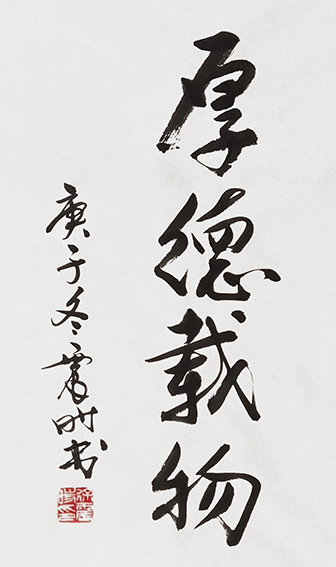 厚德载物
庚子冬震时书